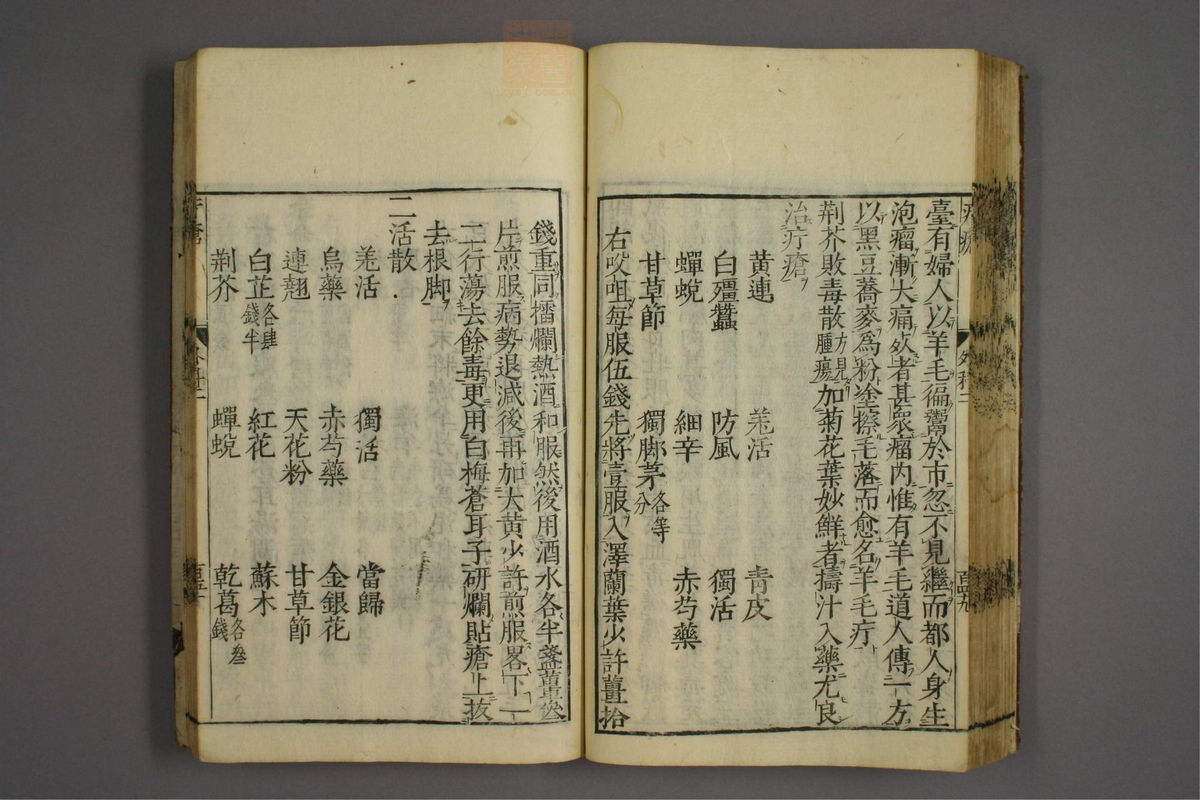 臺有婦人以羊毛徧鬻於市忽不見繼而都人身生
泡瘤漸大痛死者甚衆瘤内惟有羊毛道人傳一方
以黒豆蕎麥為粉塗搽毛落而愈名羊毛疔
荆芥敗毒散方見腫瘍加菊花葉妙鮮者擣汁入藥尤良
治疔瘡
黄連 羌活 青皮
白殭蠶 防風 獨活
蟬蛻 細辛 赤芍藥
甘草節 獨脚茅各等分
右㕮咀每服伍錢先將壹服入澤蘭葉少許薑拾
錢重同擂爛熱酒和服然後用酒水各半盞薑叁
片煎服病勢退減後再加大黄少許煎服畧下一
二行蕩去餘毒更用白梅蒼耳子研爛貼瘡上拔
去根脚
二活散
羌活 獨活 當歸
烏藥 赤芍藥 金銀花
連翹 天花粉 甘草節
白芷各肆錢半 紅花 蘇木
荆芥 蟬蛻 乾葛各叁錢